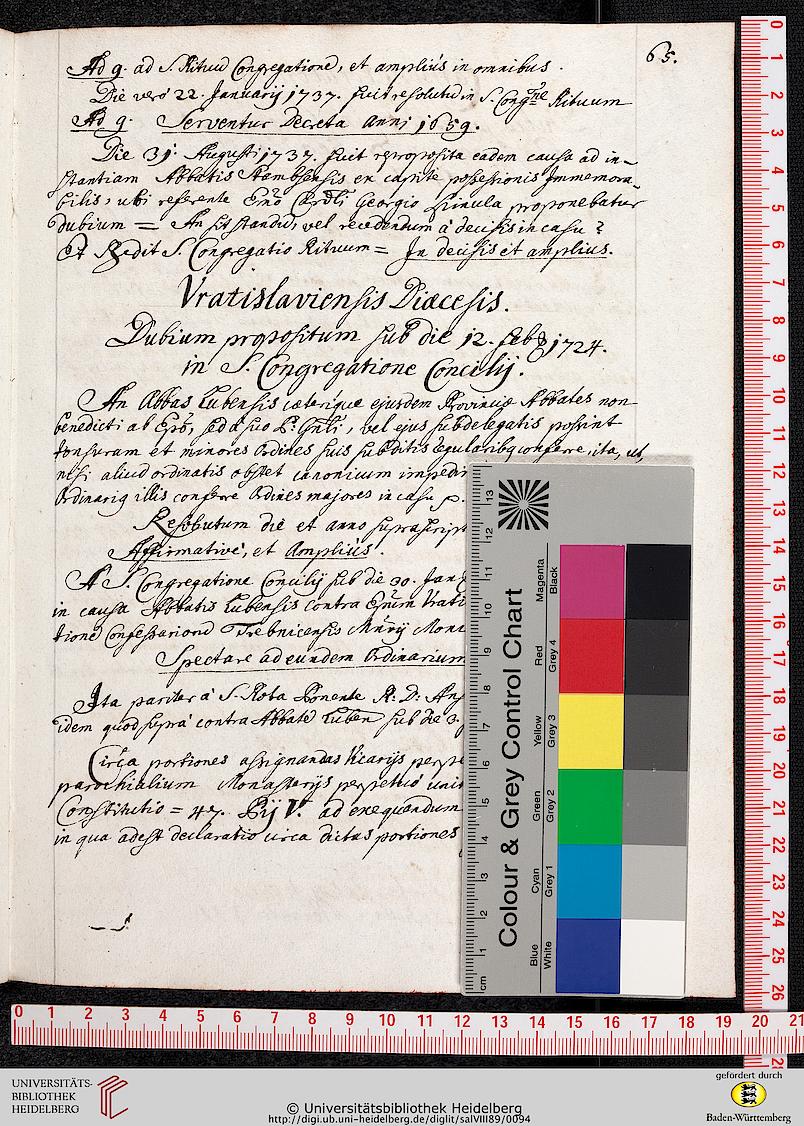 65.
Ad 9. ad S. Rituum Congregatione, et amplius in omnibus.
Die vero 22. Januarij 1737. fuit resolutu in S. Congne Rituum
Ad 9. Serventur Decreta Anni 1659.
Die 31. Augusti 1737. fuit reproposita eadem causa ad in-
stantiam Abbatis Stambsensis ex capite possessionis Immemora-
bilis, ubi referente Emo Cardli Georgio Spinula proponebatur
dubium = An sit standu, vel recedendum à decisis in casu?
Et Redit S. Congregatio Rituum = In decisis et amplius.
Vratislaviensis Diæcesis.
Dubium propositum sub die 12. Feb 1724.
in S. Congregatione Concilij.
An Abbas Lubensis cæterique ejusdem Provinciæ Abbates non
benedicti ab Epo, sed a suo P. Gnli, vel ejus subdelegatis possint
tonsuram et minores Ordines suis subditis regularibq conferre, ita, ut,
nisi aliud ordinatis obstet canonicum impedim
Ordinariq illis conferre Ordines majores in casu p.
Resolutum die et anno suprascript
Affirmativè, et Amplius.
A S. Congregatione Concilij sub die 30. Jan
in causa Abbatis Lubensis contra Emum Vrati
tione Confessariorum Trebnicensis Mnrij Moni
Spectare ad eundem Ordinarium
Ita pariter à S. Rota Ponente R. D. An
idem quod suprà contra Abbate Luben sub die 3
Circa portiones assignandas Vicarijs perpe
parochialium Monasterijs perpetuò unit
Constitutio = 47. Pij V. ad exequandum
in qua adest declaratio circa dictas portiones
Colour & Grey Control Chart
Blue Cyan Green Yellow Red Magenta
White Grey 1 Grey 2 Grey 3 Grey 4 Black
cm 1 2 3 4 5 6 7 8 9 10 11 12 13
0 1 2 3 4 5 6 7 8 9 10 11 12 13 14 15 16 17 18 19 20 21 22 23 24 25 26
0 1 2 3 4 5 6 7 8 9 10 11 12 13 14 15 16 17 18 19 20 21
UNIVERSITÄTS-
BIBLIOTHEK
HEIDELBERG
© Universitätsbibliothek Heidelberg
http://digi.ub.uni-heidelberg.de/diglit/salVIII89/0094
gefördert durch
Baden-Württemberg